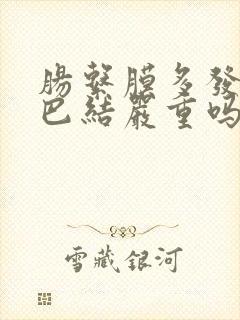 腸繫膜多發
巴結嚴重吗
雪藏銀河